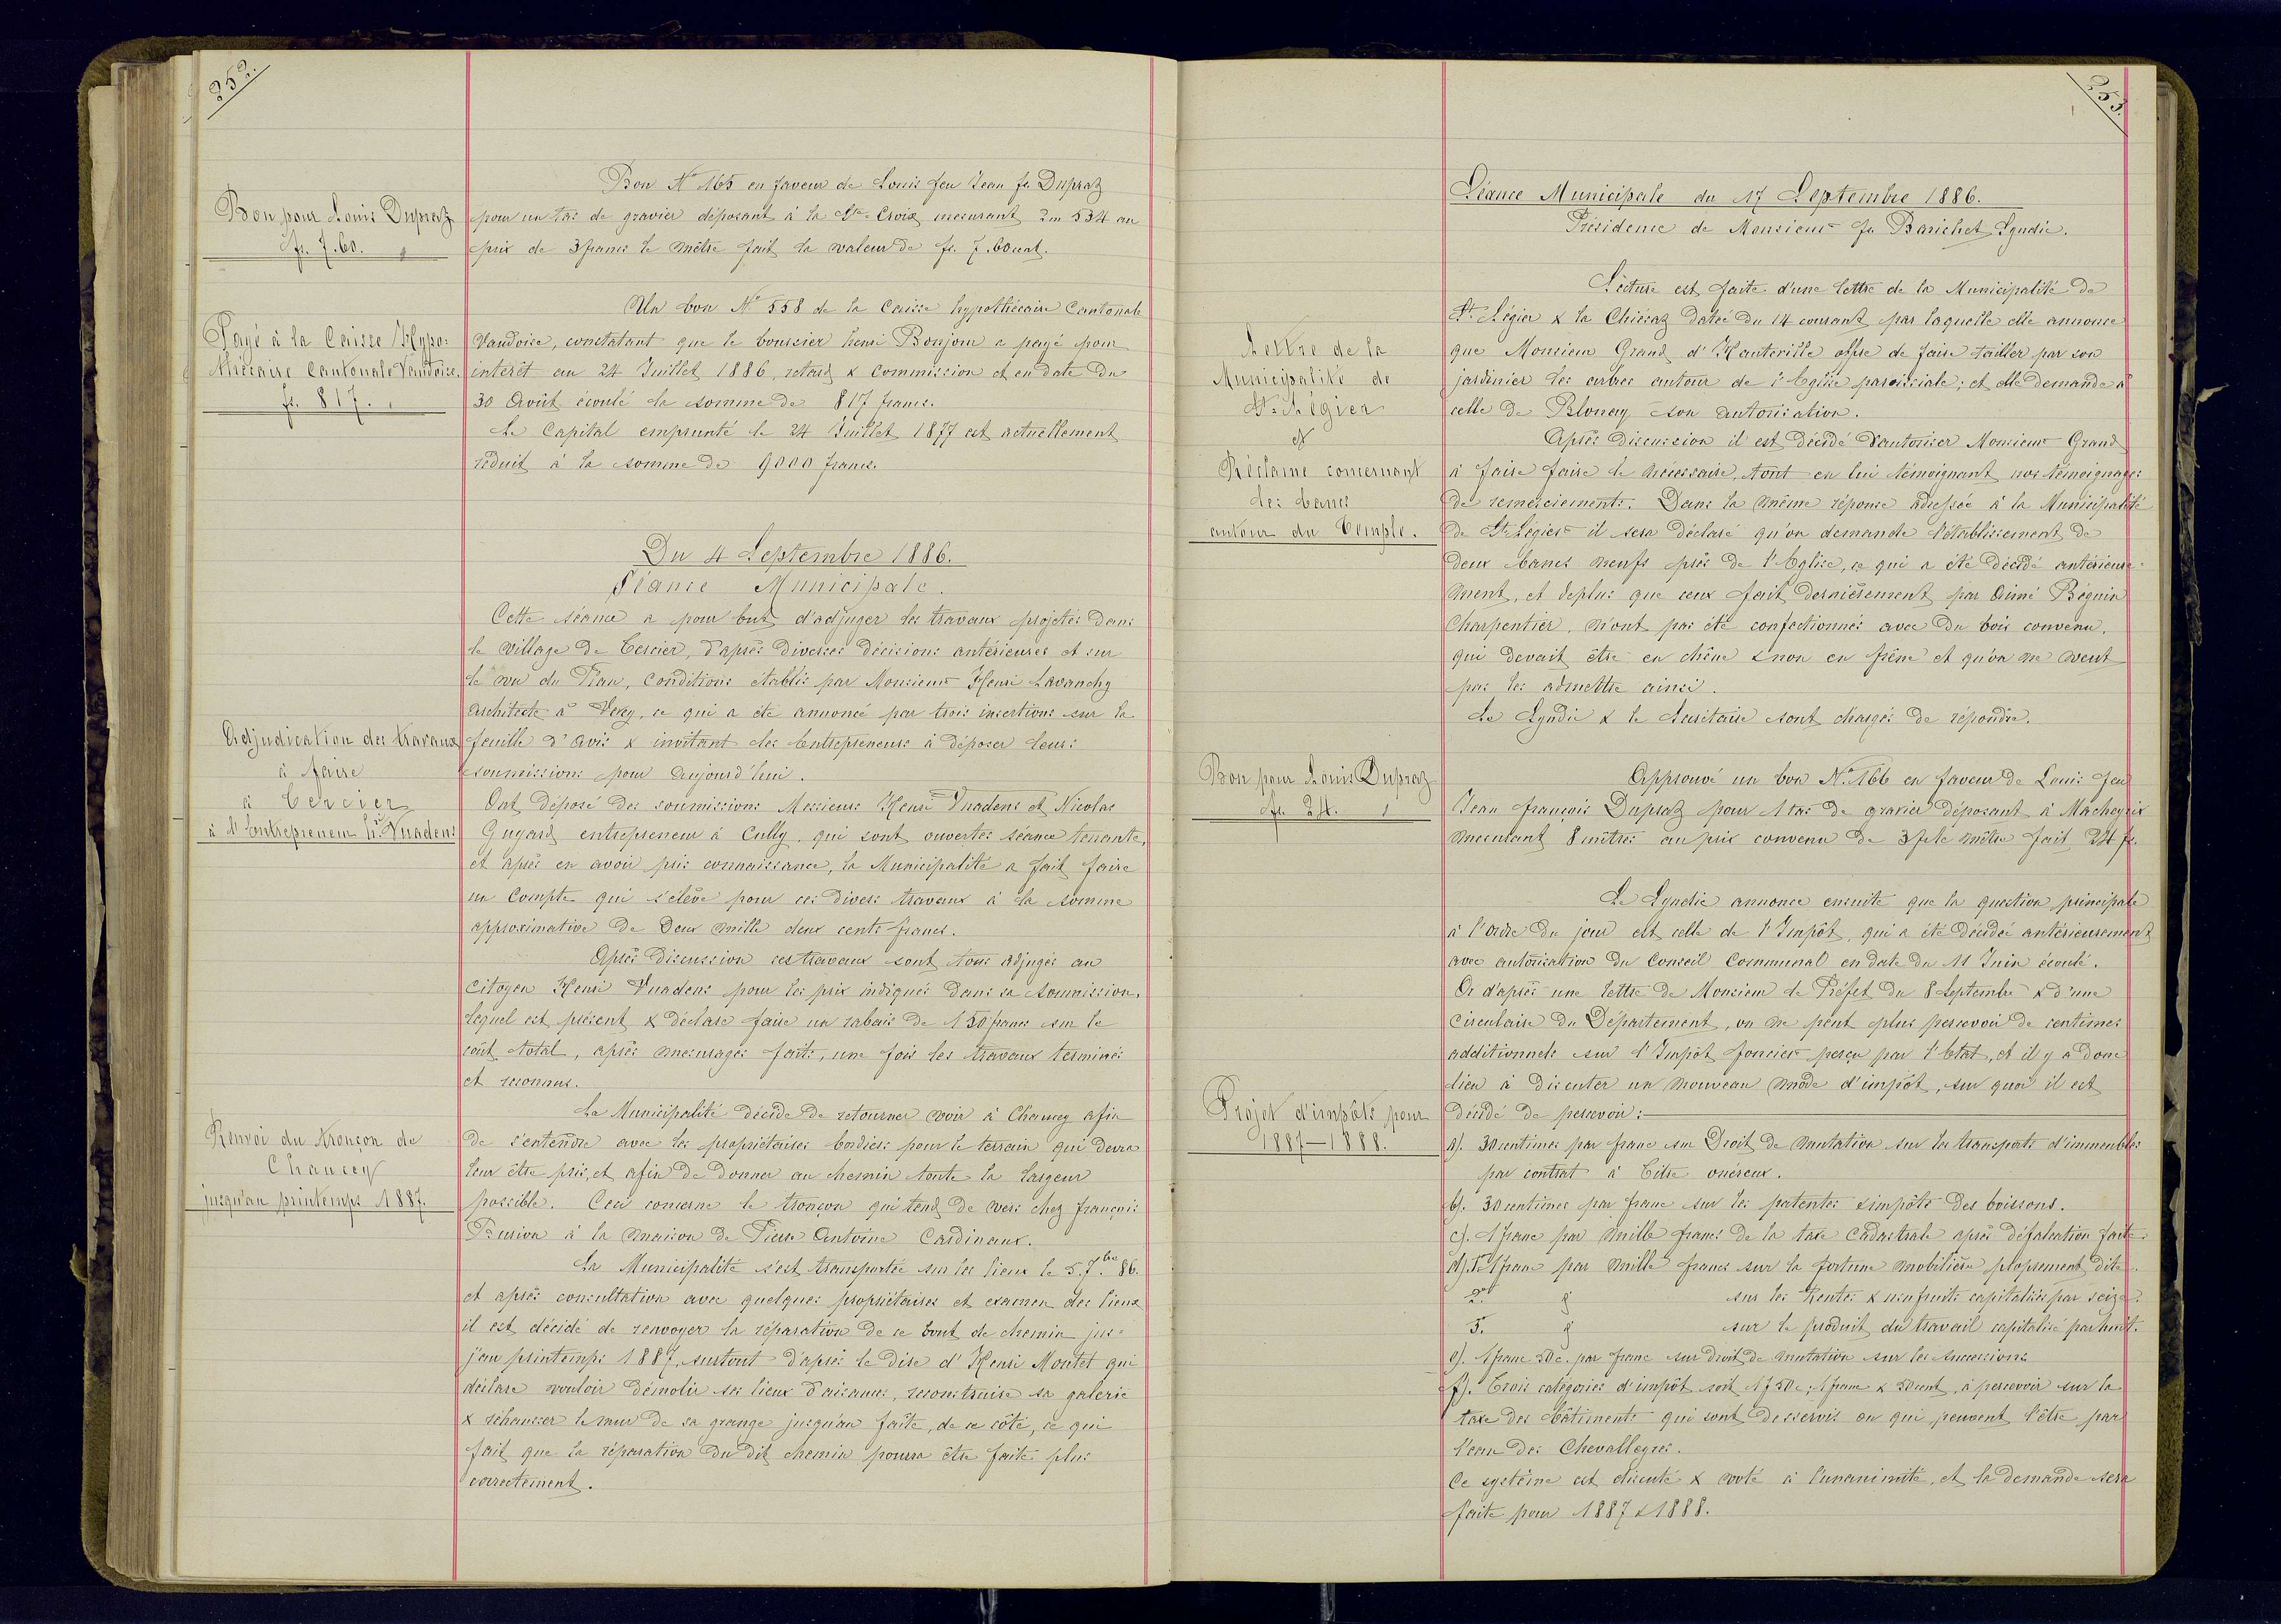 252.
Bon pour Louis Dupraz
fr. 7.60.
Bon N° 165 en faveur de Louis feu Jean fs Dupraz
pour un tas de gravier déposant à la Ste Croix mesurant 2m 534 au
prix de 3 francs le mètre fait la valeur de fr. 7.60cent.
Payé à la Caisse Hypo-
thécaire Cantonale Vaudoise.
fr. 817.
Un bon N° 558 de la Caisse hypothécaire Cantonale
Vaudoise, constatant que le boursier henri Bonjour a payé pour
intérêt au 24 Juillet 1886, retard & commission et en date du
30 Août écoulé la somme de 817 francs.
Le Capital emprunté le 24 Juillet 1877 est actuellement
réduit à la somme de 9000 francs.
Du 4 Septembre 1886.
Séance Municipale.
Cette séance a pour but d'adjuger les travaux projetés dans
le village de Tercier, d'après diverses décisions antérieures et sur
le vu du Plan, Conditions établis par Monsieur Henri Lavanchy
Architecte à Vevey, ce qui a été annoncé par trois insertions sur la
Adjudication des travaux
à faire
à Tercier
à l'Entrepreneur hri Vuadens
feuille d'Avis & invitant les Entrepreneurs à déposer leurs
soumissions pour aujourd'hui.
Ont déposé des soumissions Messieurs Henri Vuadens et Nicolas
Guyard entrepreneur à Cully, qui sont ouvertes séance tenante,
et après en avoir pris connaissance, la Municipalité a fait faire
un Compte qui s'élève pour ces divers travaux à la somme
approximative de Deux mille deux cents francs.
Après discussion ces travaux sont tous adjugés au
Citoyen Henri Vuadens pour les prix indiqués dans sa soumission,
lequel est présent & déclare faire un rabais de 150 francs sur le
coût total, après mesurages faits, une fois les travaux terminés
et reconnus.
Renvoi du tronçon de
Chaucey
jusqu'au printemps 1887.
La Municipalité décide de retourner voir à Chaucey afin
de s'entendre avec les propriétaires bordiers pour le terrain qui devra
leur être pris, et afin de donner au chemin toute la largeur
possible. Ceci concerne le tronçon qui tend de vers chez françois
Burion à la maison de Pierre Antoine Cardinaux.
La Municipalité s'est transportée sur les lieux le 5.7.bre 86.
et après consultation avec quelques propriétaires et examen des lieux
il est décidé de renvoyer la réparation de ce bout de chemin jus-
j'au printemps 1887, surtout d'après le dire d'Henri Moutet qui
déclare vouloir démolir ses lieux d'aisances, reconstruire sa galerie
& réhausser le mur de sa grange jusqu'au faîte, de ce côté, ce qui
fait que la réparation du dit chemin pourra être faite plus
correctement.
253.
Séance Municipale du 17 Septembre 1886.
Présidence de Monsieur fs Barichet Syndic.
Lettre de la
Municipalité de
St. Légier
et
Réclame concernant
les bancs
autour du Temple.
Lecture est faite d'une lettre de la Municipalité de
St. Légier & la Chiésaz datée du 14 courant par laquelle elle annonce
que Monsieur Grand d'Hauteville offre de faire tailler par son
jardinier les arbres autour de l'Eglise paroissiale; et elle demande à
celle de Blonay son autorisation.
Après discussion il est décidé d'autoriser Monsieur Grand
à faire faire le nécessaire, tout en lui témoignant nos témoignages
de remerciements. Dans la même réponse adressée à la Municipalité
de St. Légier il sera déclaré qu'on demande l'établissement de
deux bancs neufs près de l'Eglise, ce qui a été décidé antérieure-
ment, et deplus que ceux fait dernièrement par Aimé Béguin
Charpentier, n'ont pas été confectionnés avec du bois convenu,
qui devait être en chêne & non en frêne et qu'on ne veut
pas les admettre ainsi.
Le Syndic & le Secrétaire sont chargés de répondre.
Bon pour Louis Dupraz
fr. 24.
Approuvé un bon N° 166 en faveur de Louis feu
Jean françois Dupraz pour 1 tas de gravier déposant à Macheyrix
mesurant 8 mètres au prix convenu de 3 f le mètre fait 24 fr.
Le Syndic annonce ensuite que la question principale
à l'ordre du jour est celle de l'Impôt, qui a été décidée antérieurement
avec autorisation du Conseil Communal en date du 11 Juin écoulé.
Or d'après une lettre de Monsieur le Préfet du 8 Septembre & d'une
Circulaire du Département, on ne peut plus percevoir de centimes
additionnels sur l'Impôt foncier perçu par l'Etat, et il y a donc
lieu à discuter un nouveau mode d'impôt, sur quoi il est
Projet d'impôts pour
1887—1888.
décidé de percevoir:
a). 30 centimes par franc sur Droit de mutation sur les transports d'immeubles
par contrat à Titre onéreux.
b). 30 centimes par franc sur les patentes & impôts des boissons.
c). 1 franc par mille francs de la taxe Cadastrale après défalcation faite.
d). 1° 1 franc par mille francs sur la fortune mobilière proprement dite.
2. " sur les Rentes & usufruits capitalisés par seize.
3. " sur le produit du travail capitalisé par huit.
e). 1 franc 50c. par franc sur droit de mutation sur les successions
f). Trois catégories d'impôt soit 1 f 50c; 1 franc & 50 cent, à percevoir sur la
taxe des bâtiments qui sont desservis ou qui peuvent l'être par
l'eau des Chevalleyres.
Ce système est discuté & voté à l'unanimité, et la demande sera
faite pour 1887 & 1888.